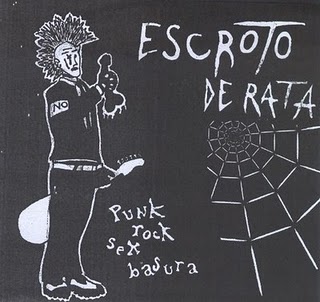 ESCROTO
DE RATA
NO
PUNK
rock
sex
basura